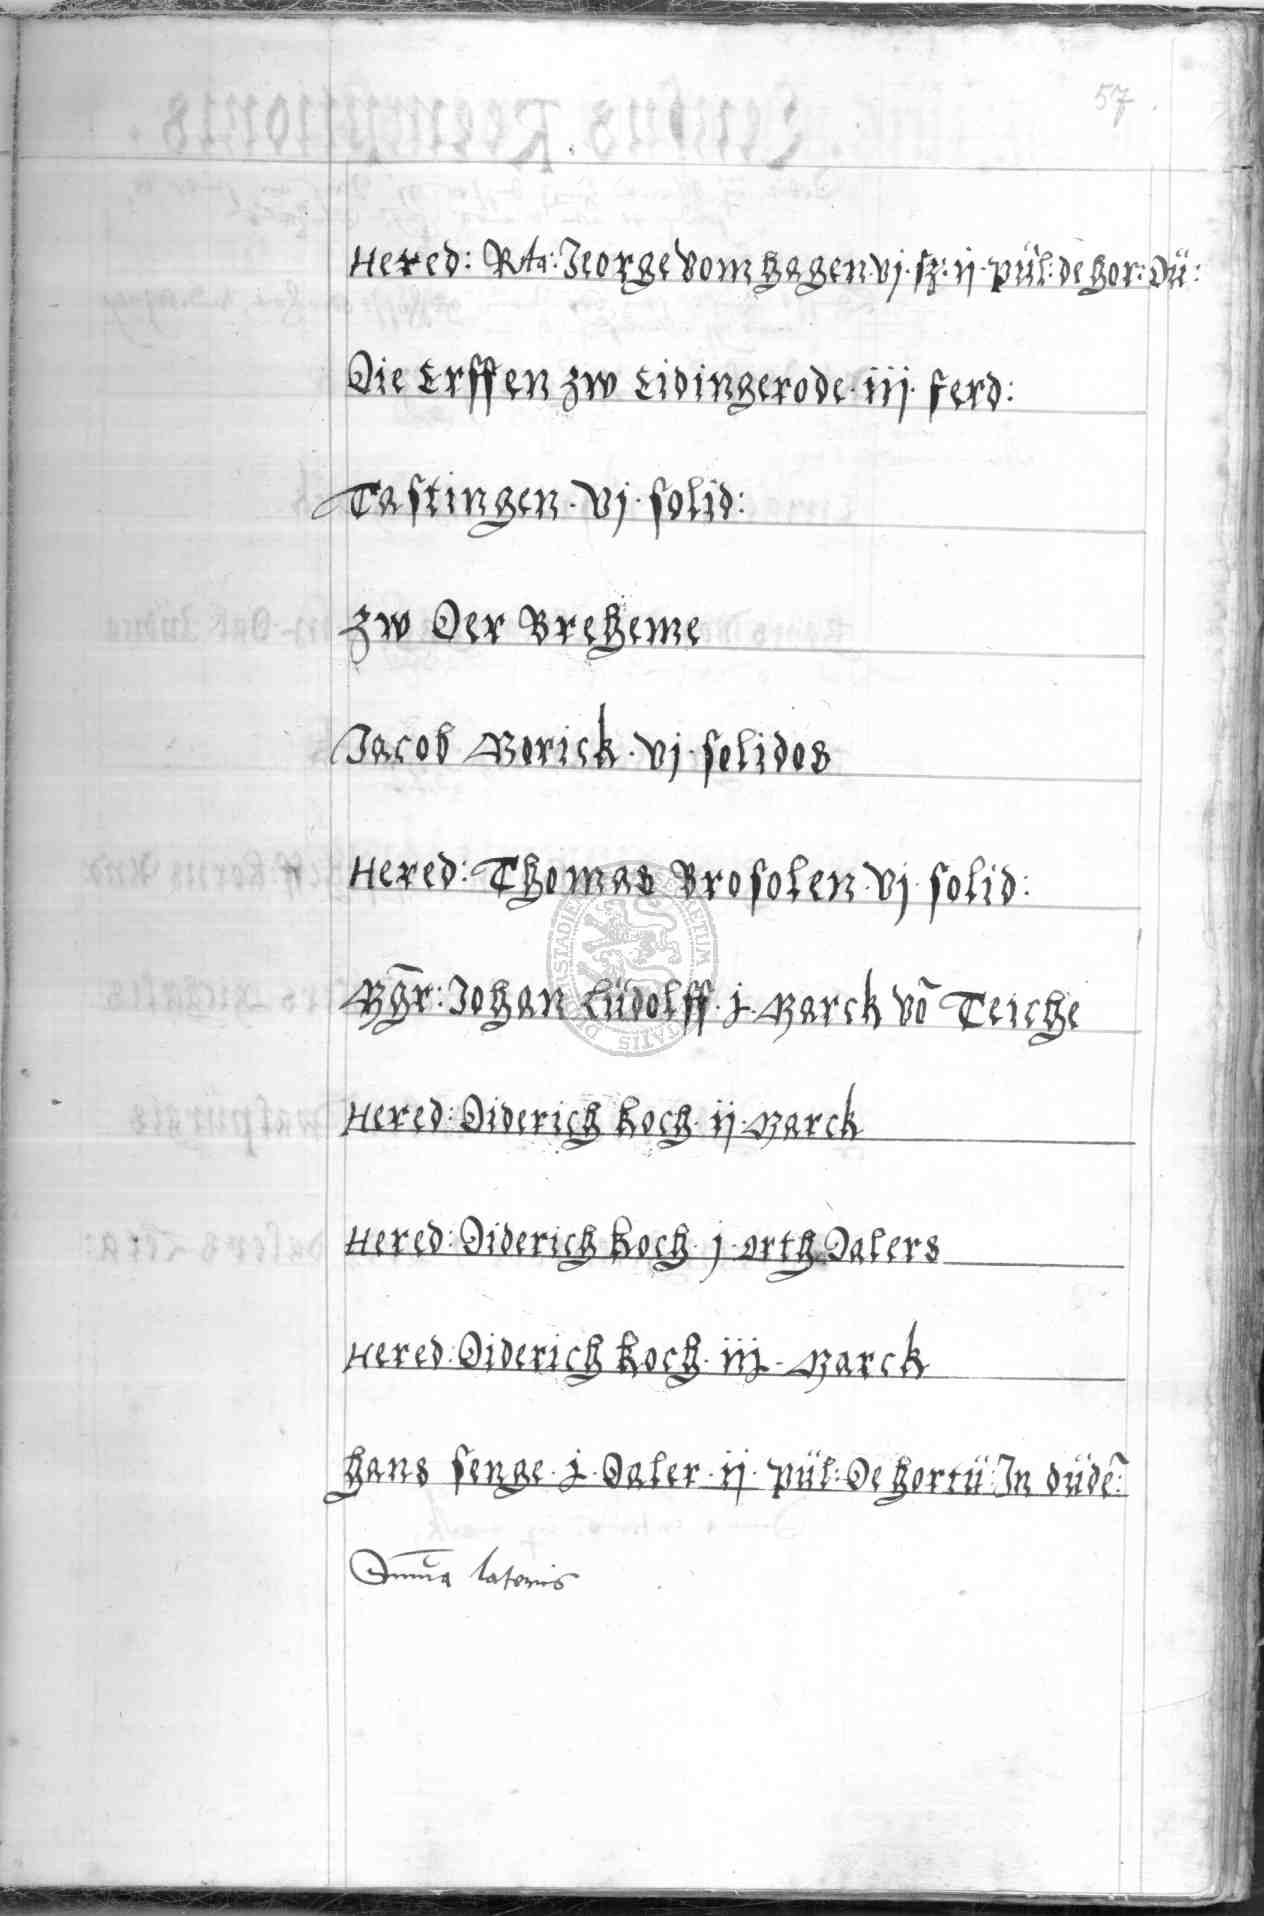 57
Hered: Rta: Jeorge vom hagen vj sz: ij pül: de hor: dü:
Die Erffen zw Eidingerode iij ferd:
Tastingen vj solid:
zw Der Breheme
Jacob Morick vj solidos
Hered: Thomas Brosolen vj solid:
Mgr: Johan Lüdolff j Marck vō Teiche
Hered: Diderich koch ij Marck
Hered: Diderich koch j orth Dalers
Hered: Diderich koch iij Marck
hans senge j Daler ij pül: De hortü: In düdē:
Summa lateris